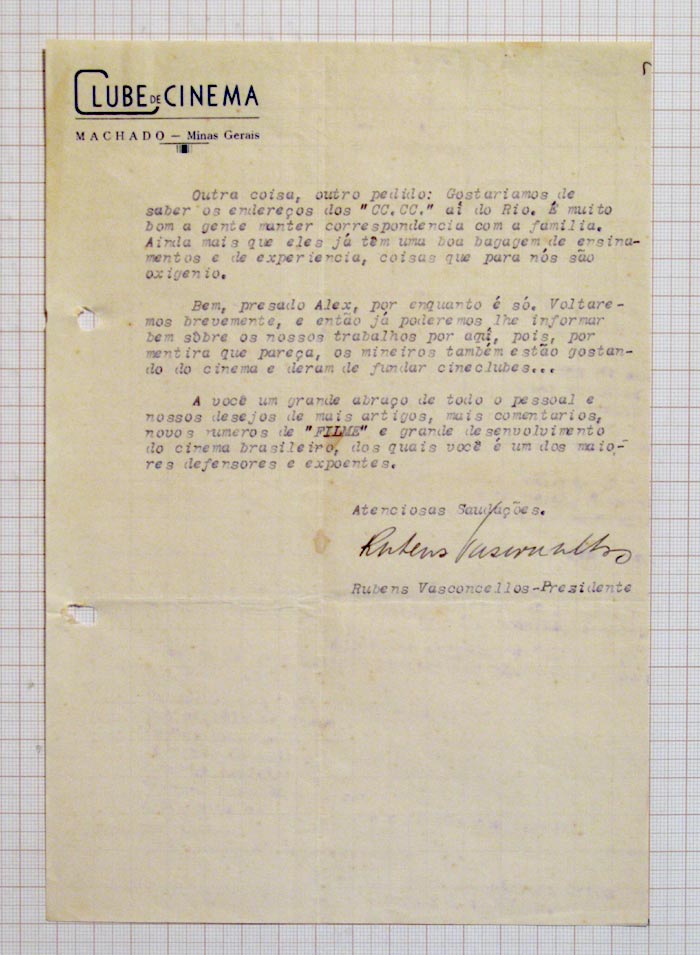 CLUBE DE CINEMA
MACHADO — Minas Gerais
Outra coisa, outro pedido: Gostariamos de
saber os endereços dos "CC.CC." aí do Rio. É muito
bom a gente manter correspondencia com a familia.
Ainda mais que eles já têm uma boa bagagem de ensina-
mentos e de experiencia, coisas que para nós são
oxigenio.
Bem, presado Alex, por enquanto é só. Voltare-
mos brevemente, e então já poderemos lhe informar
bem sôbre os nossos trabalhos por aqui, pois, por
mentira que pareça, os mineiros também estão gostan-
do do cinema e deram de fundar cineclubes...
A você um grande abraço de todo o pessoal e
nossos desejos de mais artigos, mais comentarios,
novos numeros de "FILME" e grande desenvolvimento
do cinema brasileiro, dos quais você é um dos maio-
res defensores e expoentes.
Atenciosas Saudações.
Rubens Vasconcellos
Rubens Vasconcellos-Presidente